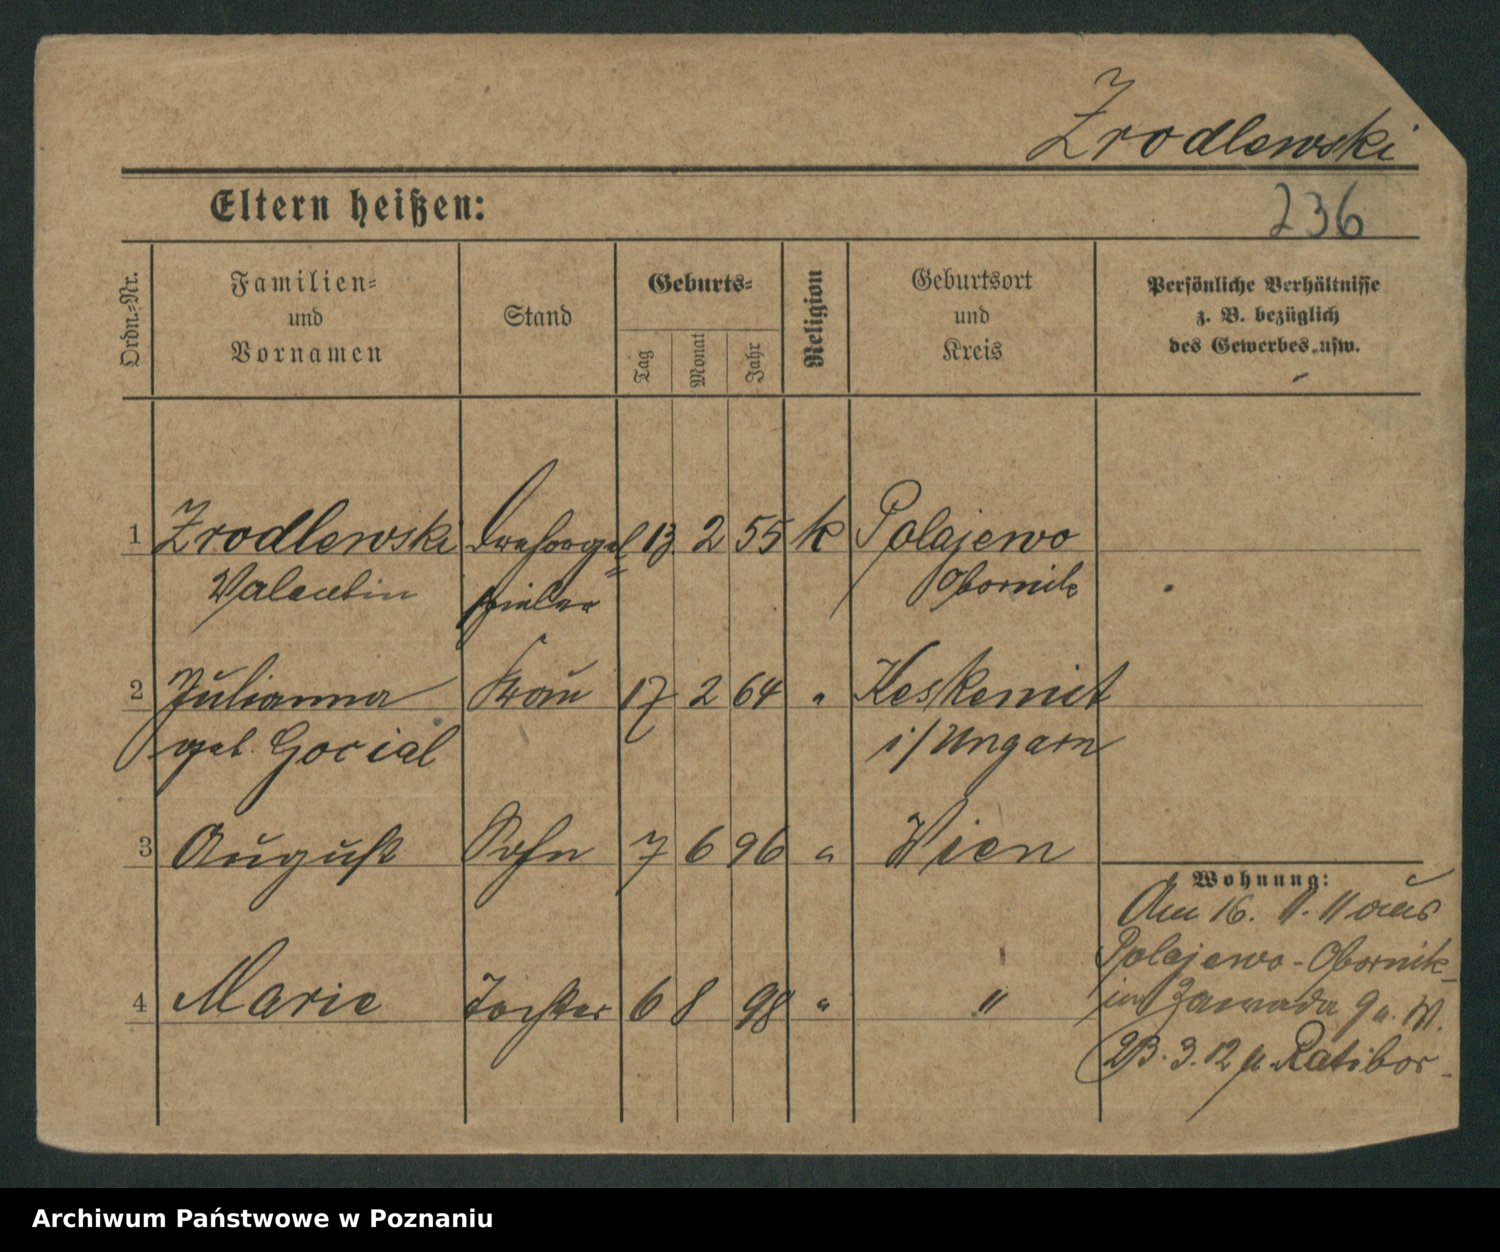 Zrodlewski
Eltern heißen:
236
Ordn.-Nr.
Familien-
und
Vornamen
Stand
Geburts-
Tag
Monat
Jahr
Religion
Geburtsort
und
Kreis
Persönliche Verhältnisse
z. B. bezüglich
des Gewerbes usw.
1 Zrodlewski Drehorgel 13 2 55 k Polajewo
Valentin spieler Obornik
2 Julianna Frau 17 2 64 " Keskemit
geb. Gocial i/Ungarn
3 August Sohn 7 6 96 " Wien
Wohnung:
Am 16. 11. 11 aus
Polajewo - Obornik
in Zawada
4 Marie Tochter 6 8 98 " "
23. 3. 12 n. Ratibor.
Archiwum Państwowe w Poznaniu